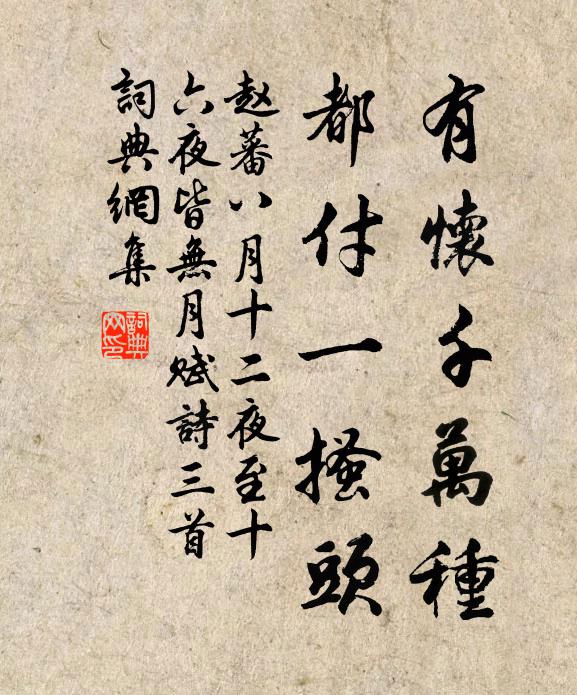 有懷千萬種
都付一搔頭
赵蕃八月十二夜至十
六夜皆無月賦詩三首
詞典網集
詞典网印